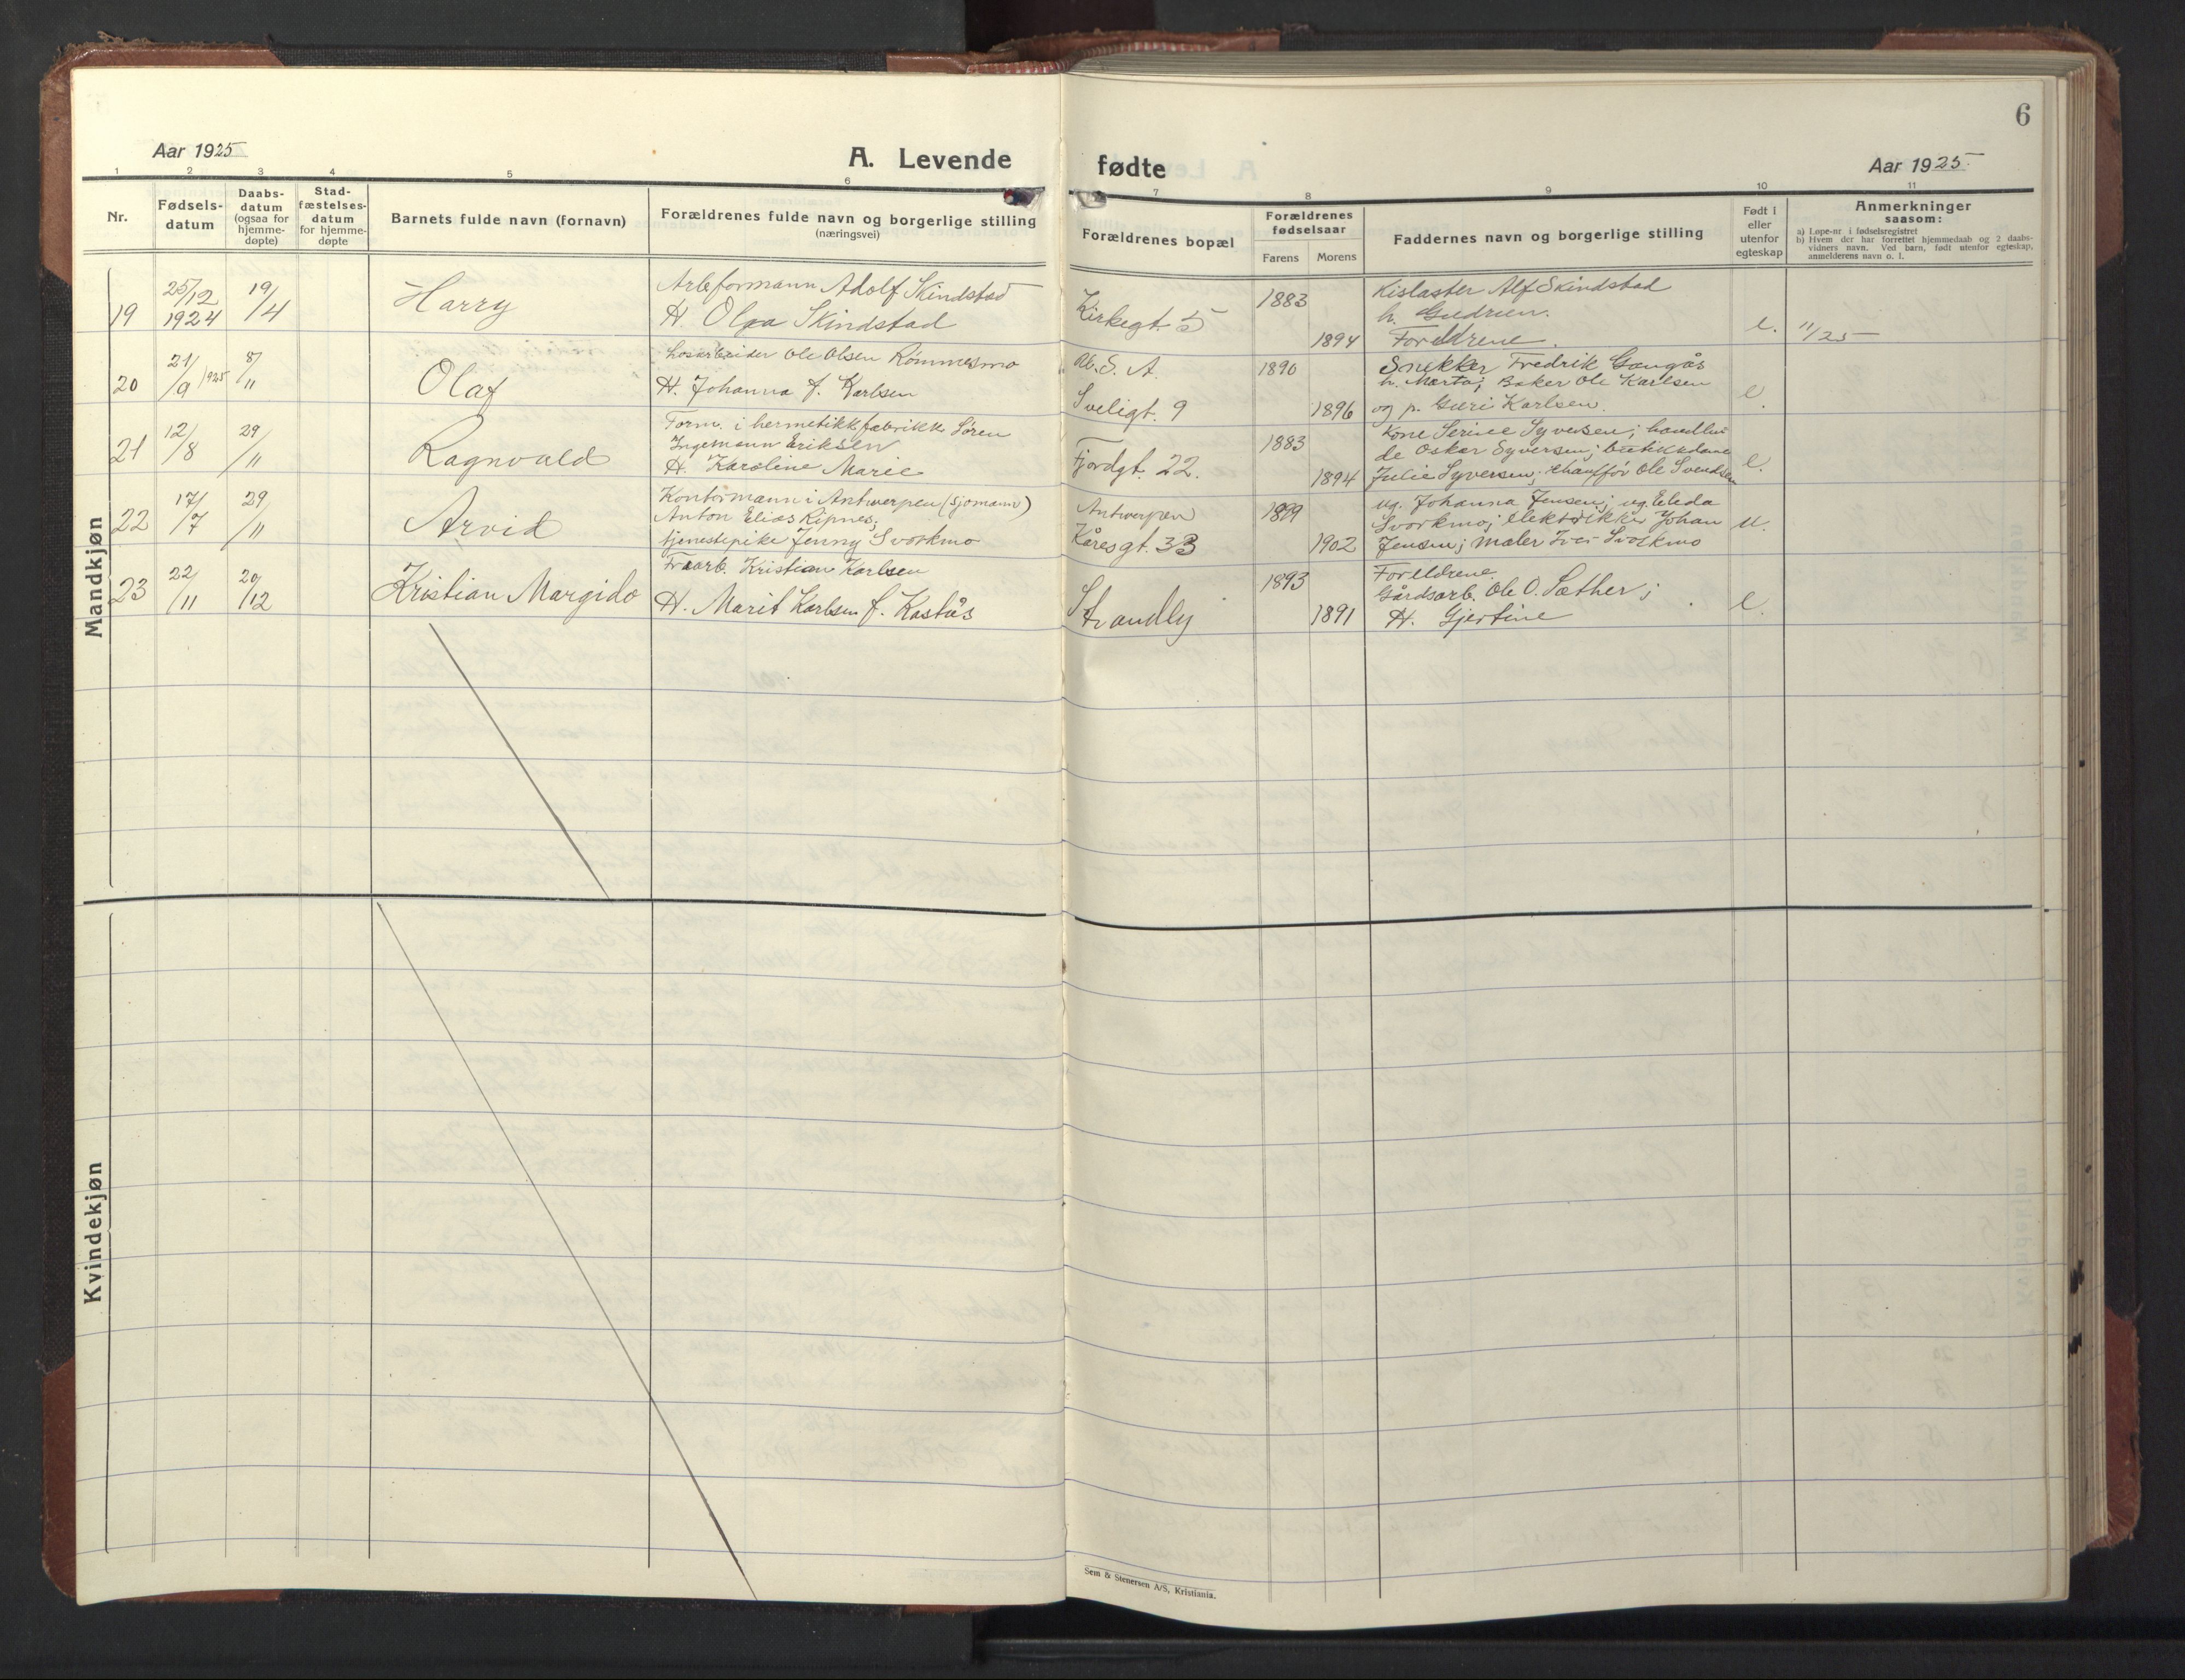 6
Aar 1925
A. Levende
fødte
Aar 1925.
1 2 3 4 5 6 7 8 9 10 11
Nr.
Fødsels-
datum
Daabs-
datum
(ogsaa for
hjemme-
døpte)
Stad-
fæstelses-
datum
for hjemme-
døpte
Barnets fulde navn (fornavn)
Forældrenes fulde navn og borgerlige stilling
(næringsvei)
Forældrenes bopæl
Forældrenes
fødselsaar
Farens Morens
Faddernes navn og borgerlige stilling
Født i
eller
utenfor
egteskap
Anmerkninger
saasom:
a) Løpe-nr. i fødselsregistret
b) Hvem der har forrettet hjemmedaab og 2 daabs-
vidners navn. Ved barn, født utenfor egteskap,
anmelderens navn o. l.
Mandkjøn
19
25/12
1924
19/4
Harry
Arbeformann Adolf Skindstad
H. Olga Skindstad
Kirkegt. 5
1883
1894
Kislaster Alf Skindstad
h. Gudrun.
Foreldrene.
e.
11/25
20
21/9 1925
8/"
Olaf
Losarbeider Ole Olsen Rømmesmo
H. Johanna f. Karlsen
U.S.A.
Sveligt. 9
1890
1896
Snekker Fredrik Gangås
h. Marta; Baker Ole Karlsen
og p. Guri Karlsen.
e.
21
12/8
29/"
Ragnvald
Form. i hermetikkfabrikk Søren
Ingemann Eriksen
H. Karoline Marie
Fjordgt. 22.
1883
1894
Kone Serine Syversen; handlen-
de Oskar Syversen; butikkdame
Julie Syversen; chauffør Ole Svendsen
e.
22
17/7
29/"
Arvid
Kontormann i Antwerpen (sjomann)
Anton Elias Ripnes;
tjenestepike Jenny Svorkmo
Antwerpen
Kåresgt. 33
1899
1902
ug. Johanna Jensen; ug. Eleda
Svorkmo; elektrikker Johan
Jensen; maler Iver Svorkmo
u.
23
22/11
20/12
Kristian Margido
Kristian Karlsen
H. Marit Karlsen f. Kastås
Strandly
1893
1891
Foreldrene.
Gårdsarb. Ole O. Sæther;
H. Gjertine
e.
Kvindekjøn
Sem & Stenersen A/S, Kristiania.